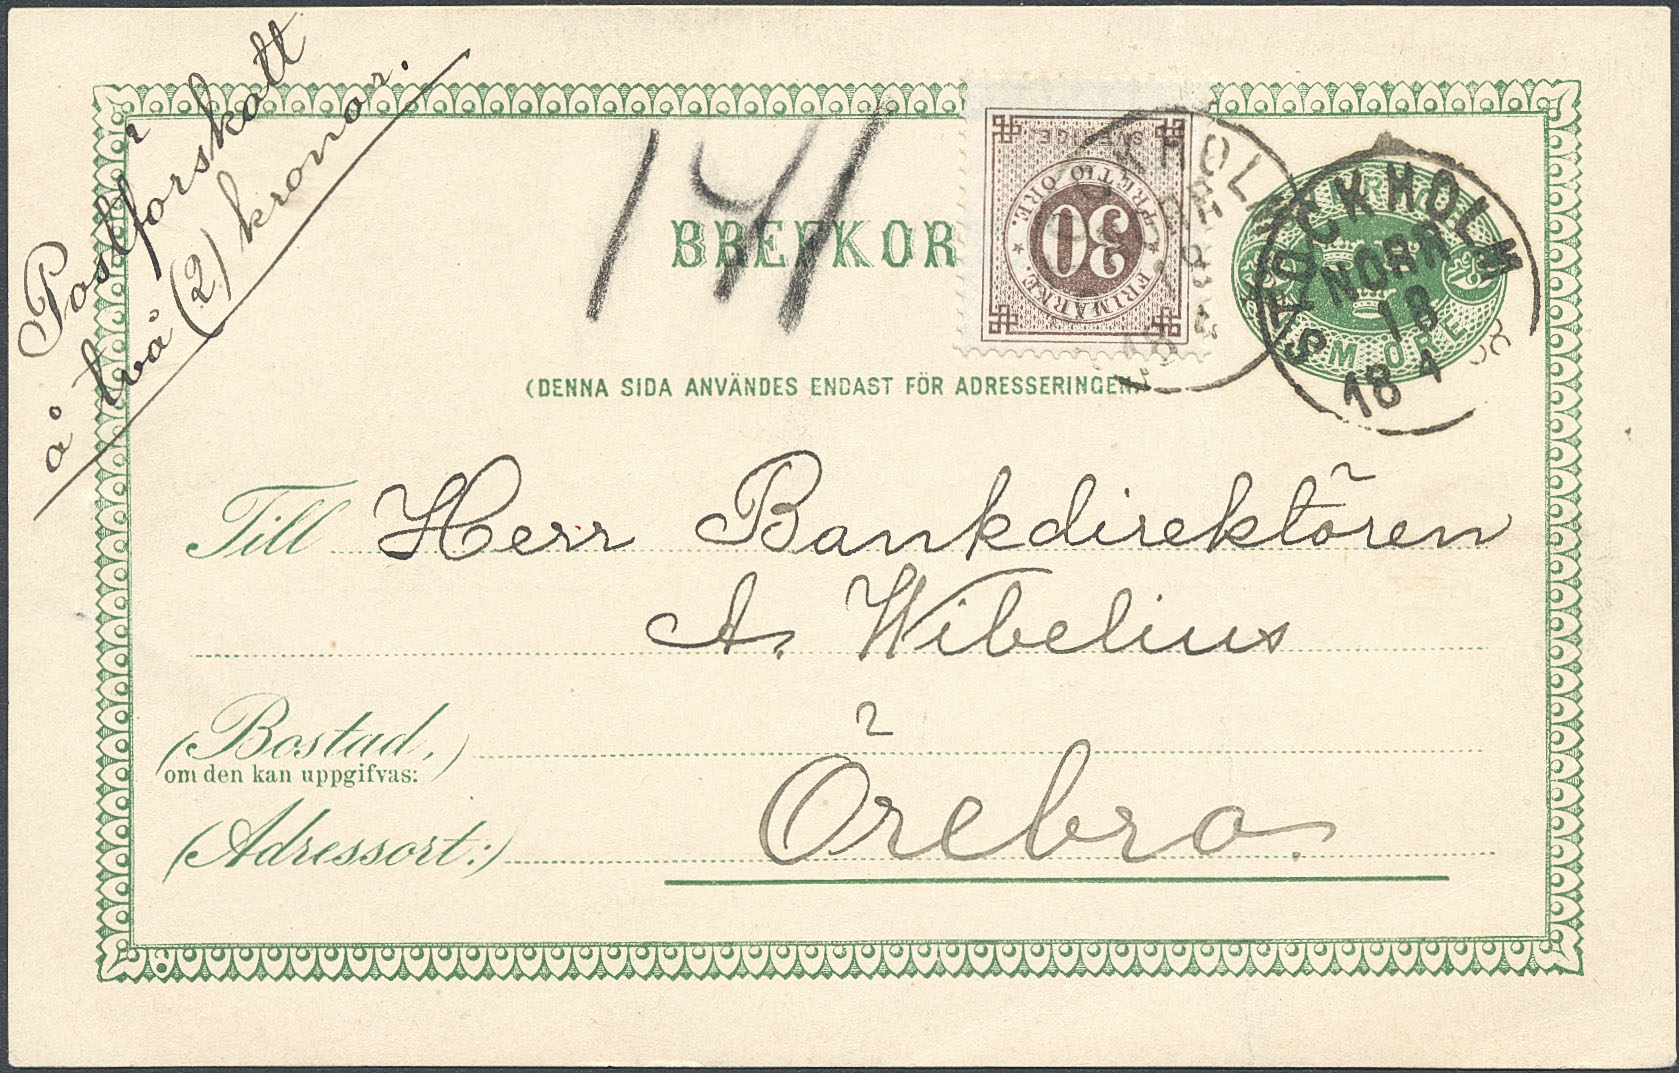 Postförskott
å två (2) kronor.
141
BREFKOR
SVERIGE
FRIMÄRKE. TRETTIO ÖRE.
30
KHOL
STOCKHOLM
NORR
18
4
18
FEM ÖRE
(DENNA SIDA ANVÄNDES ENDAST FÖR ADRESSERINGEN.)
Till Herr Bankdirektören
A. Wibelius
(Bostad,)
om den kan uppgifvas:
(Adressort:) Örebro.